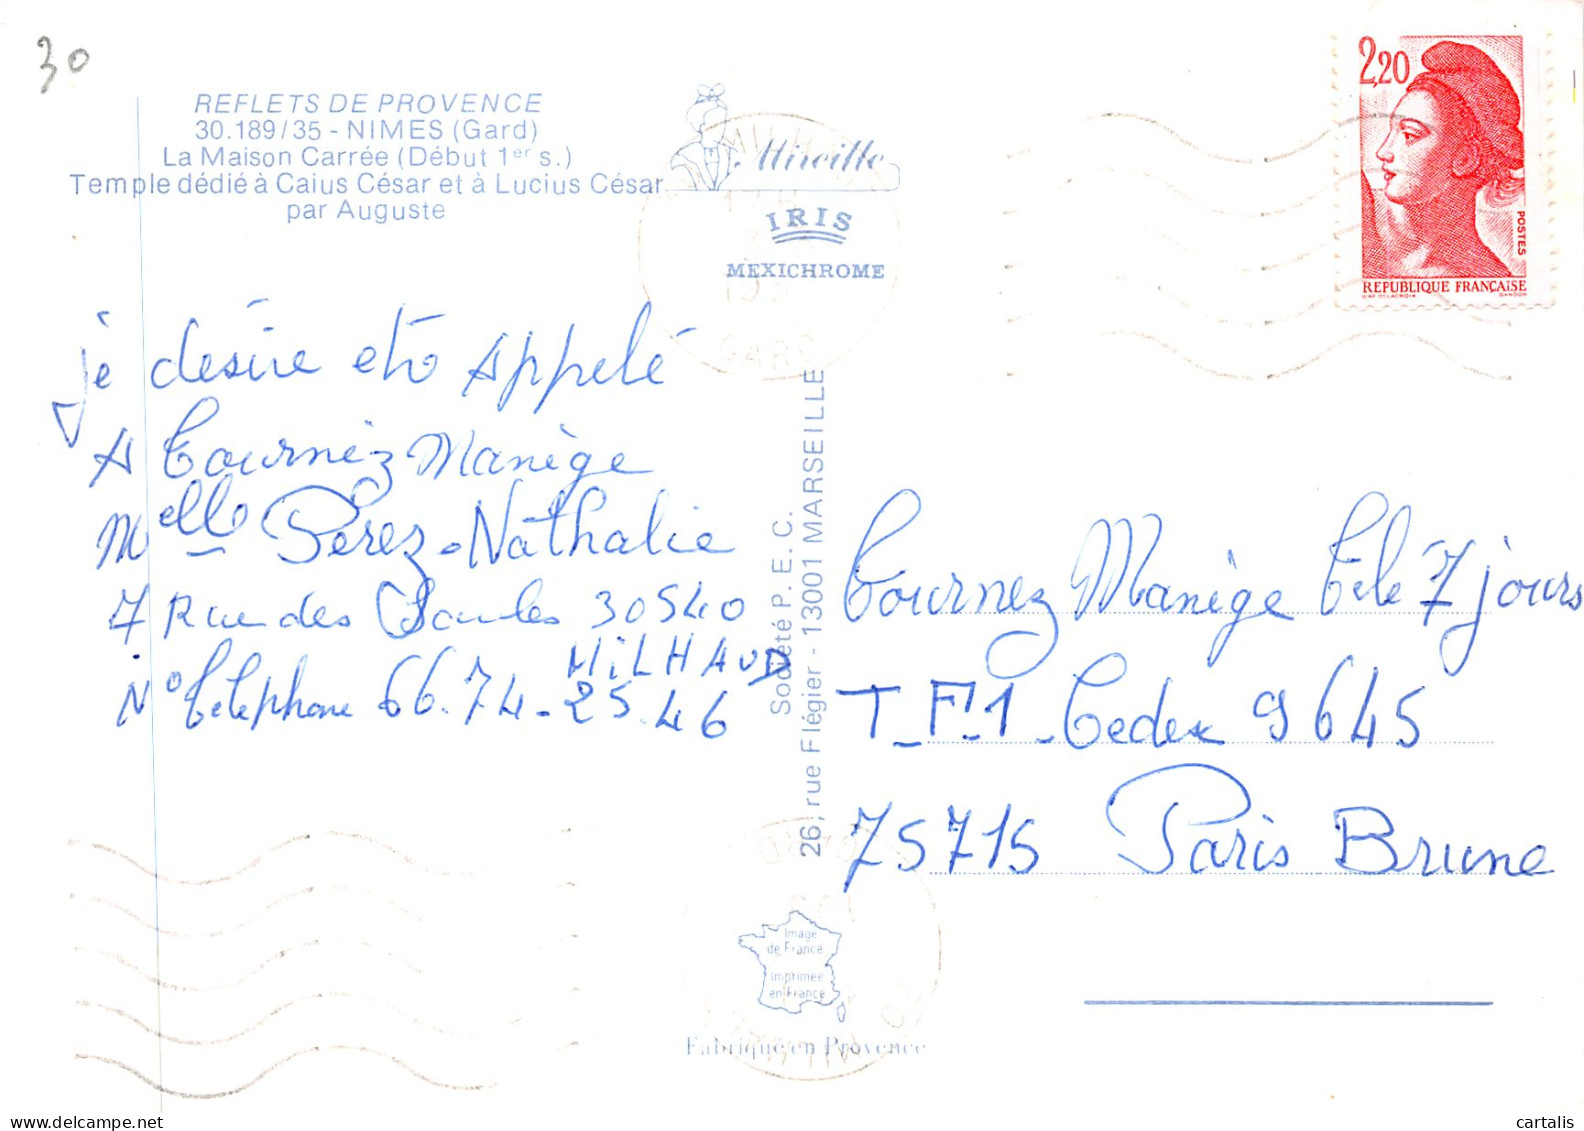 30
REFLETS DE PROVENCE
30.189/35 - NIMES (Gard)
La Maison Carrée (Début 1er s.)
Temple dédié à Caius César et à Lucius César
par Auguste
Mireille
IRIS
MEXICHROME
2,20
POSTES
REPUBLIQUE FRANÇAISE
D'AP DELACROIX GANDON
je désire etre Appelé
A Tournez Manège
Melle Perez-Nathalie
7 Rue des Saules 30540
MiLHAUD
N° Telephone 66.74-25.46
Société P.E.C.
26, rue Flégier - 13001 MARSEILLE
Tournez Manège Télé 7 jours
T_F1_Cedex 9645
75715 Paris Brune
Image
de France
Imprimée
en France
Fabriqué en Provence
GARD
cartalis